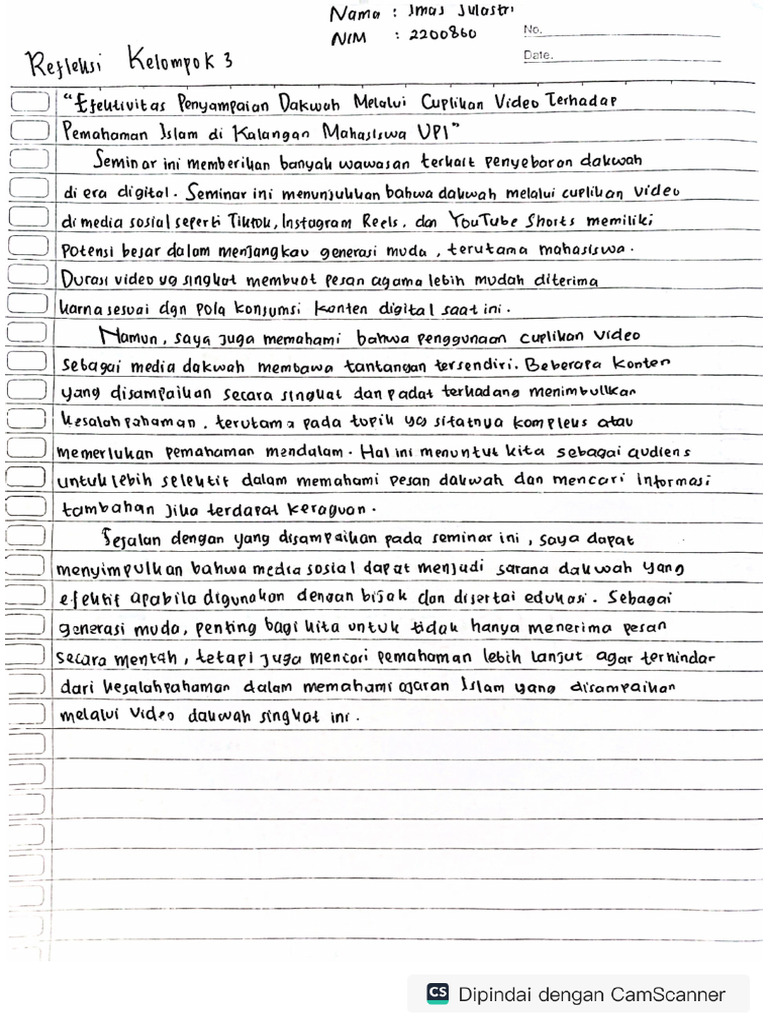 Nama : Imas Sulastri
NIM : 2200860
No.
Date.
Refleksi Kelompok 3
"Efektivitas Penyampaian Dakwah Melalui Cuplikan Video Terhadap
Pemahaman Islam di Kalangan Mahasiswa UPI"
Seminar ini memberikan banyak wawasan terkait penyebaran dakwah
di era digital. Seminar ini menunjukkan bahwa dakwah melalui cuplikan video
di media sosial seperti Tiktok, Instagram Reels, dan YouTube Shorts memiliki
potensi besar dalam menjangkau generasi muda, terutama mahasiswa.
Durasi video yg singkat membuat pesan agama lebih mudah diterima
karna sesuai dgn pola konsumsi konten digital saat ini.
Namun, saya juga memahami bahwa penggunaan cuplikan video
sebagai media dakwah membawa tantangan tersendiri. Beberapa konten
yang disampaikan secara singkat dan padat terkadang menimbulkan
kesalahpahaman, terutama pada topik yg sifatnya kompleks atau
memerlukan pemahaman mendalam. Hal ini menuntut kita sebagai audiens
untuk lebih selektif dalam memahami pesan dakwah dan mencari informasi
tambahan jika terdapat keraguan.
Sejalan dengan yang disampaikan pada seminar ini, saya dapat
menyimpulkan bahwa media sosial dapat menjadi sarana dakwah yang
efektif apabila digunakan dengan bijak dan disertai edukasi. Sebagai
generasi muda, penting bagi kita untuk tidak hanya menerima pesan
secara mentah, tetapi juga mencari pemahaman lebih lanjut agar terhindar
dari kesalahpahaman dalam memahami ajaran Islam yang disampaikan
melalui video dakwah singkat ini.
CS Dipindai dengan CamScanner